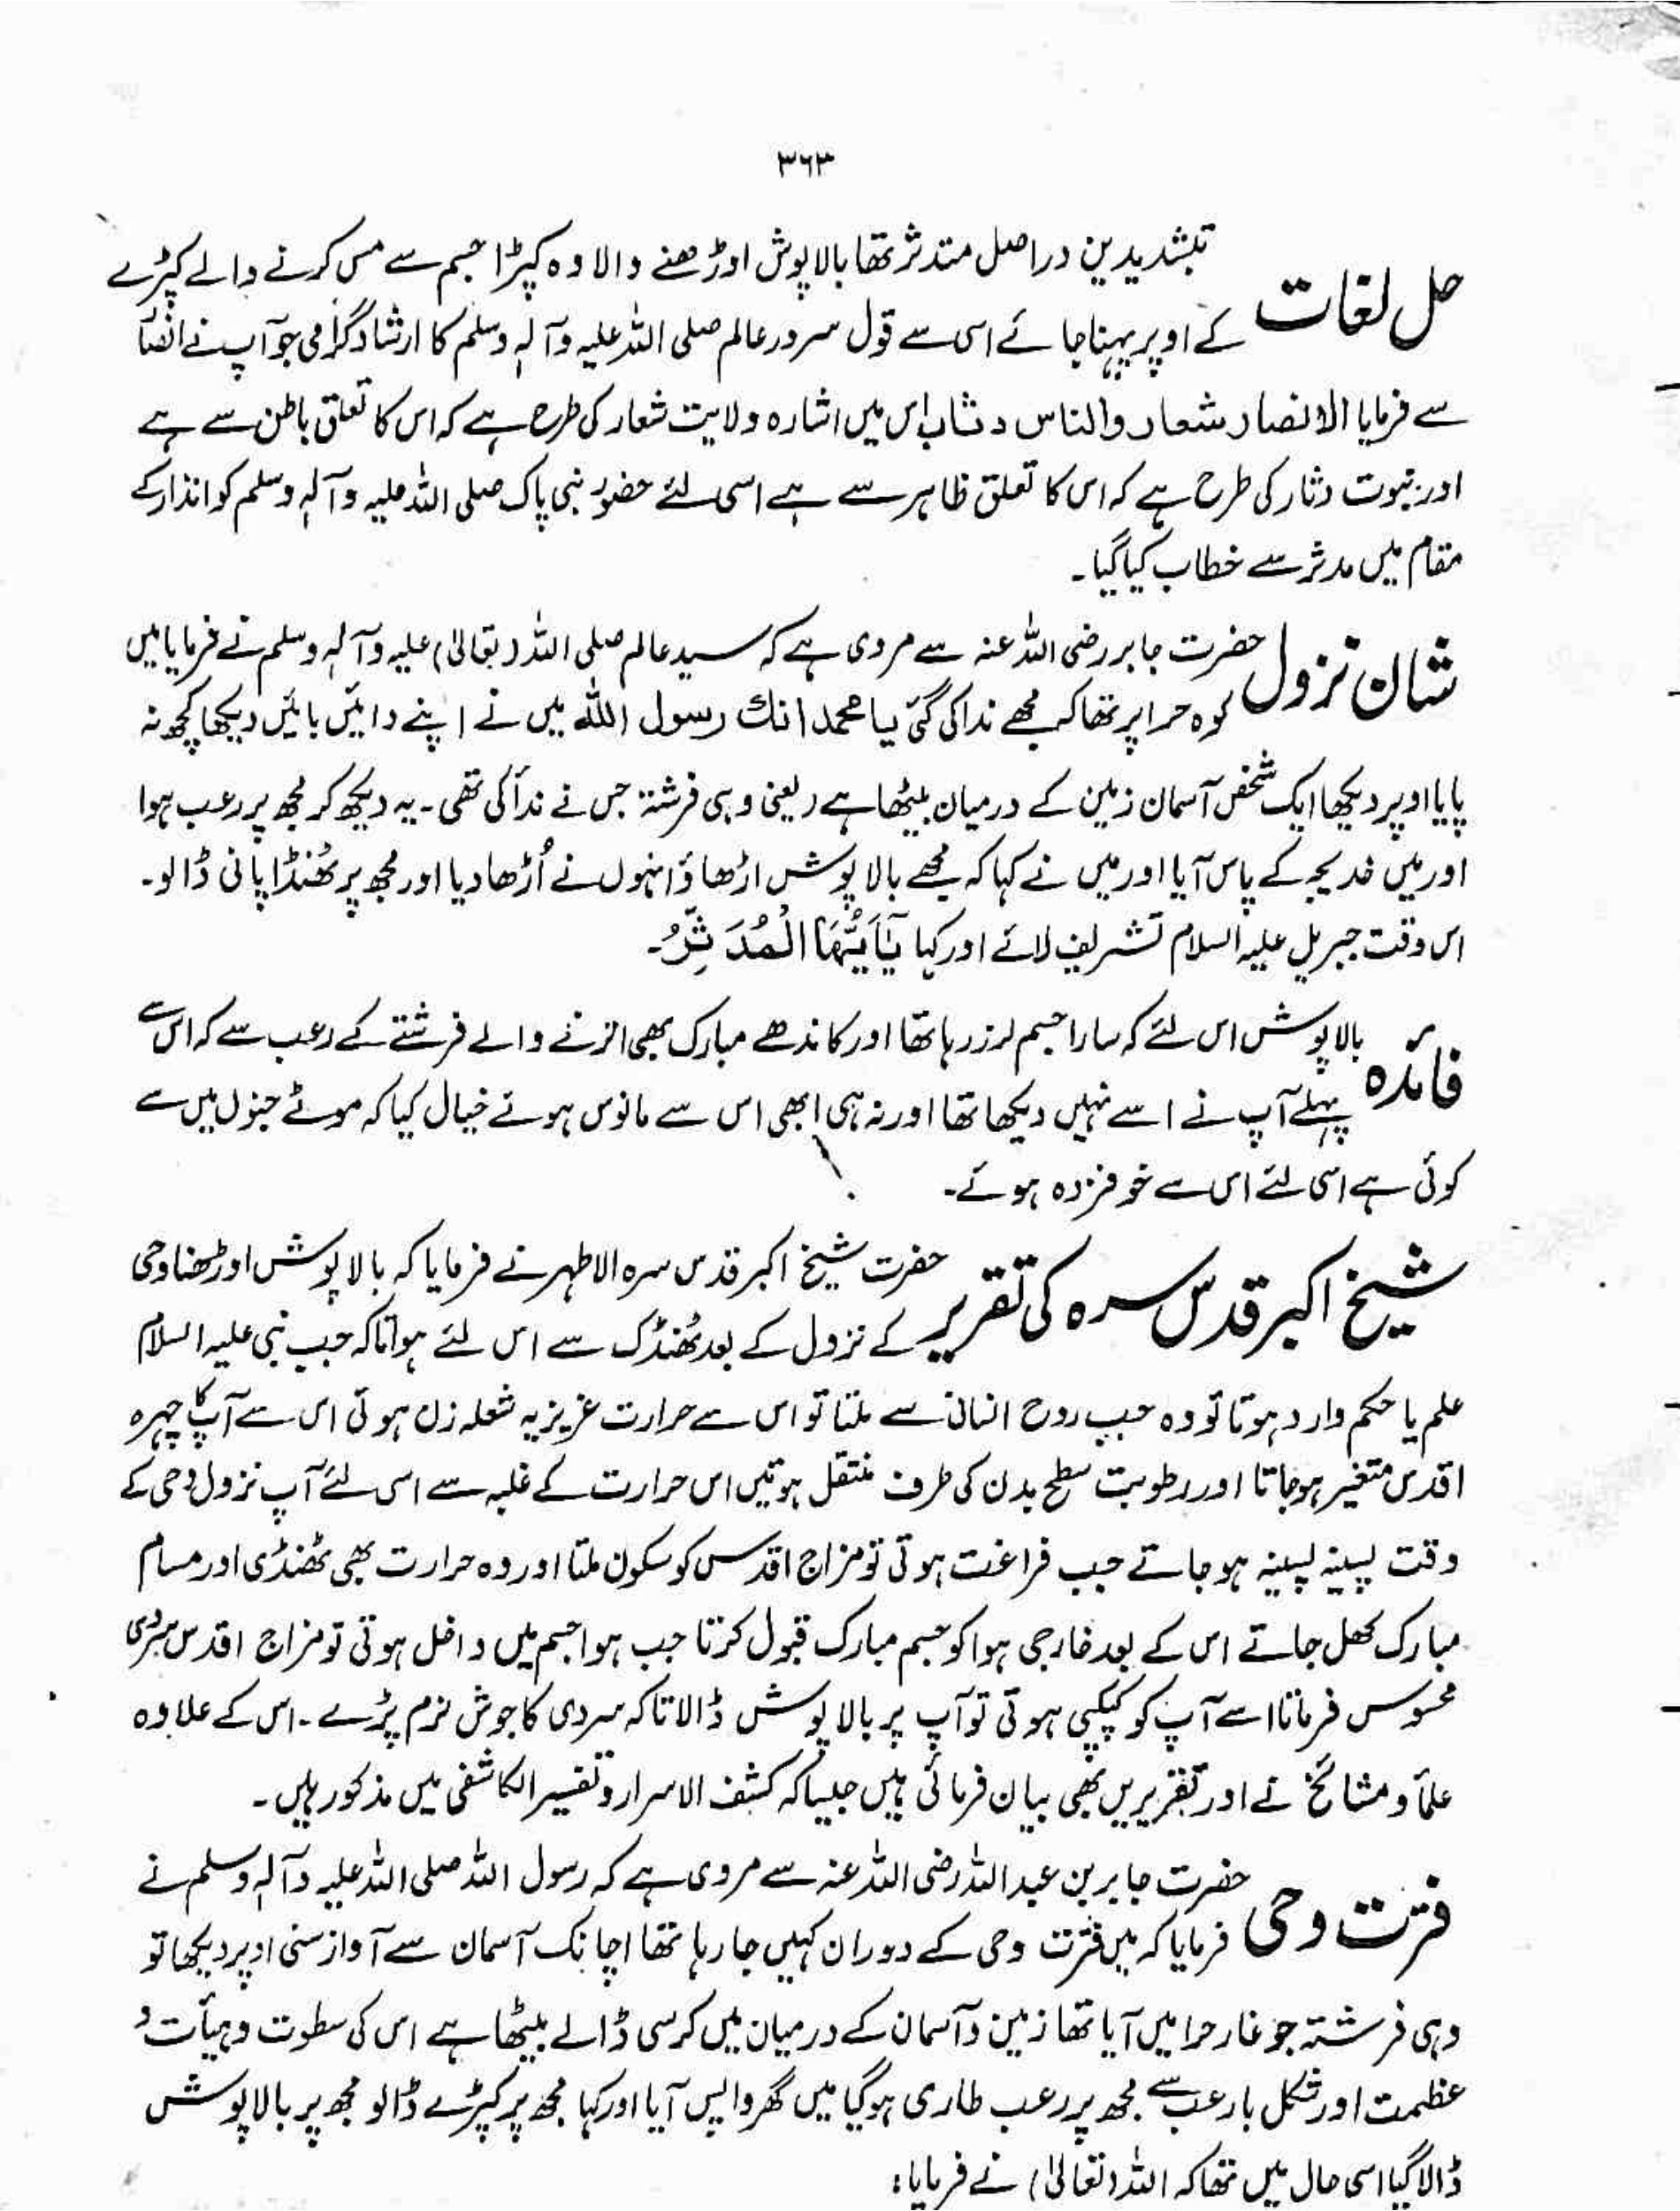 ۳۶۳
حل لغات
بتشدیدین دراصل متدثر تھا بالاپوش اوڑھنے والا وہ کپڑا جسم سے مس کرنے والے کپڑے
کے اوپر پہنا جائے اسی سے قول سرور عالم صلی اللہ علیہ وآلہٖ وسلم کا ارشاد گرامی جو آپ نے انصا
سے فرمایا الانصار شعار والناس دثار اس میں اشارہ ولایت شعار کی طرح ہے کہ اس کا تعلق باطن سے ہے
اور نبوت دثار کی طرح ہے کہ اس کا تعلق ظاہر سے ہے اسی لئے حضور نبی پاک صلی اللہ علیہ وآلہٖ وسلم کو انذار کے
مقام میں مدثر سے خطاب کیا گیا۔
شان نزول
حضرت جابر رضی اللہ عنہ سے مروی ہے کہ سید عالم صلی اللہ (تعالیٰ) علیہ وآلہٖ وسلم نے فرمایا میں
کوہ حرا پر تھا کہ مجھے ندا کی گئی یا محمد انك رسول اللہ میں نے اپنے دائیں بائیں دیکھا کچھ نہ
پایا اوپر دیکھا ایک شخص آسمان زمین کے درمیان بیٹھا ہے (یعنی وہی فرشتہ جس نے ندا کی تھی۔ یہ دیکھ کر مجھ پر رعب ہوا
اور میں خدیجہ کے پاس آیا اور میں نے کہا کہ مجھے بالاپوش اڑھاؤ انہوں نے اُڑھا دیا اور مجھ پر ٹھنڈا پانی ڈالو۔
اس وقت جبریل علیہ السلام تشریف لائے اور کہا یٰۤاَیُّهَا الْمُدَّثِّرُ۔
فائدہ
بالاپوش اس لئے کہ سارا جسم لرز رہا تھا اور کاندھے مبارک بھی اترنے والے فرشتے کے رعب سے کہ اس سے
پہلے آپ نے اسے نہیں دیکھا تھا اور نہ ہی ابھی اس سے مانوس ہوئے خیال کیا کہ موئے جنوں میں سے
کوئی ہے اسی لئے اس سے خوفزدہ ہوئے۔
شیخ اکبر قدس سرہ کی تقریر
حضرت شیخ اکبر قدس سرہ الاطہر نے فرمایا کہ بالاپوش اوڑھنا وحی
کے نزول کے بعد ٹھنڈک سے اس لئے ہوا تاکہ جب نبی علیہ السلام
علم یا حکم وارد ہوتا تو وہ جب روح انسانی سے ملتا تو اس سے حرارت غریزیہ شعلہ زن ہوتی اس سے آپ کا چہرہ
اقدس متغیر ہو جاتا اور رطوبت سطح بدن کی طرف منتقل ہوتیں اس حرارت کے غلبہ سے اسی لئے آپ نزول وحی کے
وقت پسینہ پسینہ ہو جاتے جب فراغت ہوتی تو مزاج اقدس کو سکون ملتا اور وہ حرارت بھی ٹھنڈی اور مسام
مبارک کھل جاتے اس کے بعد خارجی ہوا کو جسم مبارک قبول کرتا جب ہوا جسم میں داخل ہوتی تو مزاج اقدس سردی
محسوس فرماتا اسے آپ کو کپکپی ہوتی تو آپ پر بالاپوش ڈالا تاکہ سردی کا جوش نرم پڑے۔ اس کے علاوہ
علماء و مشائخ نے اور تقریریں بھی بیان فرمائی ہیں جیسا کہ کشف الاسرار و تفسیر الکاشفی میں مذکور ہیں۔
فترت وحی
حضرت جابر بن عبد اللہ رضی اللہ عنہ سے مروی ہے کہ رسول اللہ صلی اللہ علیہ وآلہٖ وسلم نے
فرمایا کہ میں فترت وحی کے دوران کہیں جا رہا تھا اچانک آسمان سے آواز سنی اوپر دیکھا تو
وہی فرشتہ جو غار حرا میں آیا تھا زمین و آسمان کے درمیان میں کرسی ڈالے بیٹھا ہے اس کی سطوت و ہیأت و
عظمت اور شکل بارعب سے مجھ پر رعب طاری ہو گیا میں گھر واپس آیا اور کہا مجھ پر کپڑے ڈالو مجھ پر بالاپوش
ڈالا گیا اسی حال میں تھا کہ اللہ (تعالیٰ) نے فرمایا: